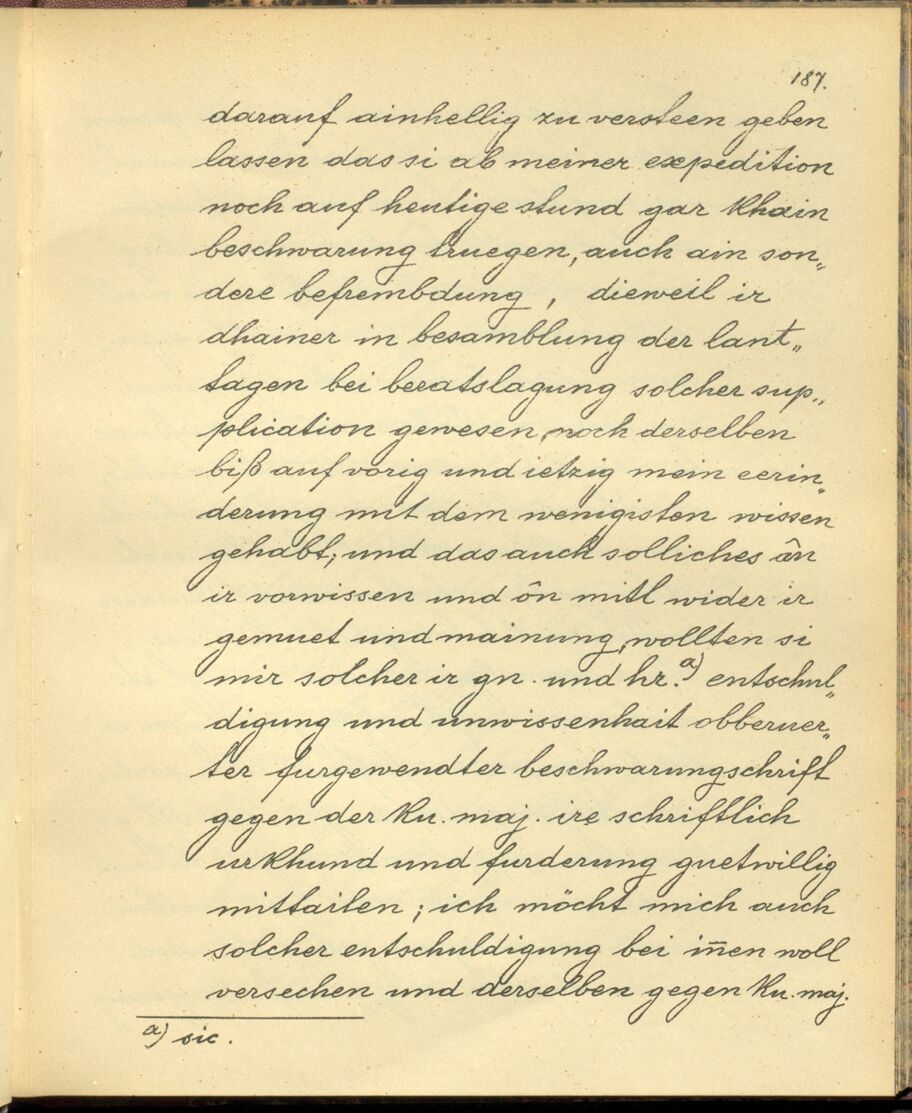 187.
darauf ainhellig zu versteen geben
lassen das si ab meiner expedition
noch auf heutige stund gar khain
beschwarung truegen, auch ain son„
dere befrembdung, dieweil ir
dhainer in besamblung der lant„
tagen bei beratslagung solcher sup„
plication gewesen, noch derselben
biß auf vorig und ietzig mein eerin„
derung mit dem wenigisten wissen
gehabt; und das auch solliches ân
ir vorwissen und ôn mitl wider ir
gemuet und mainung, wollten si
mir solcher ir gn. und hr. a) entschul„
digung und unwissenhait obberuer„
ter furgewendter beschwarungschrift
gegen der ku. maj. ire schriftlich
urkhund und furderung guetwillig
mittailen; ich möcht mich auch
solcher entschuldigung bei iñen woll
versechen und derselben gegen ku. maj.
a) sic.